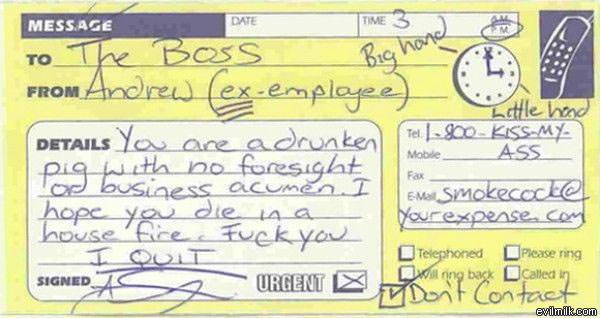 MESSAGE DATE TIME 3 A.M.
P.M.
TO The Boss Big hand
FROM Andrew (ex-employee)
Little hand
DETAILS You are a drunken
pig with no foresight
or business acumen. I
hope you die in a
house fire. Fuck you
I QUIT
SIGNED URGENT
Tel. 1-800-KISS-MY-
Mobile ASS
Fax
E-Mail smokecock@
yourexpense.com
Telephoned Please ring
Will ring back Called in
Don't Contact
evilmilk.com